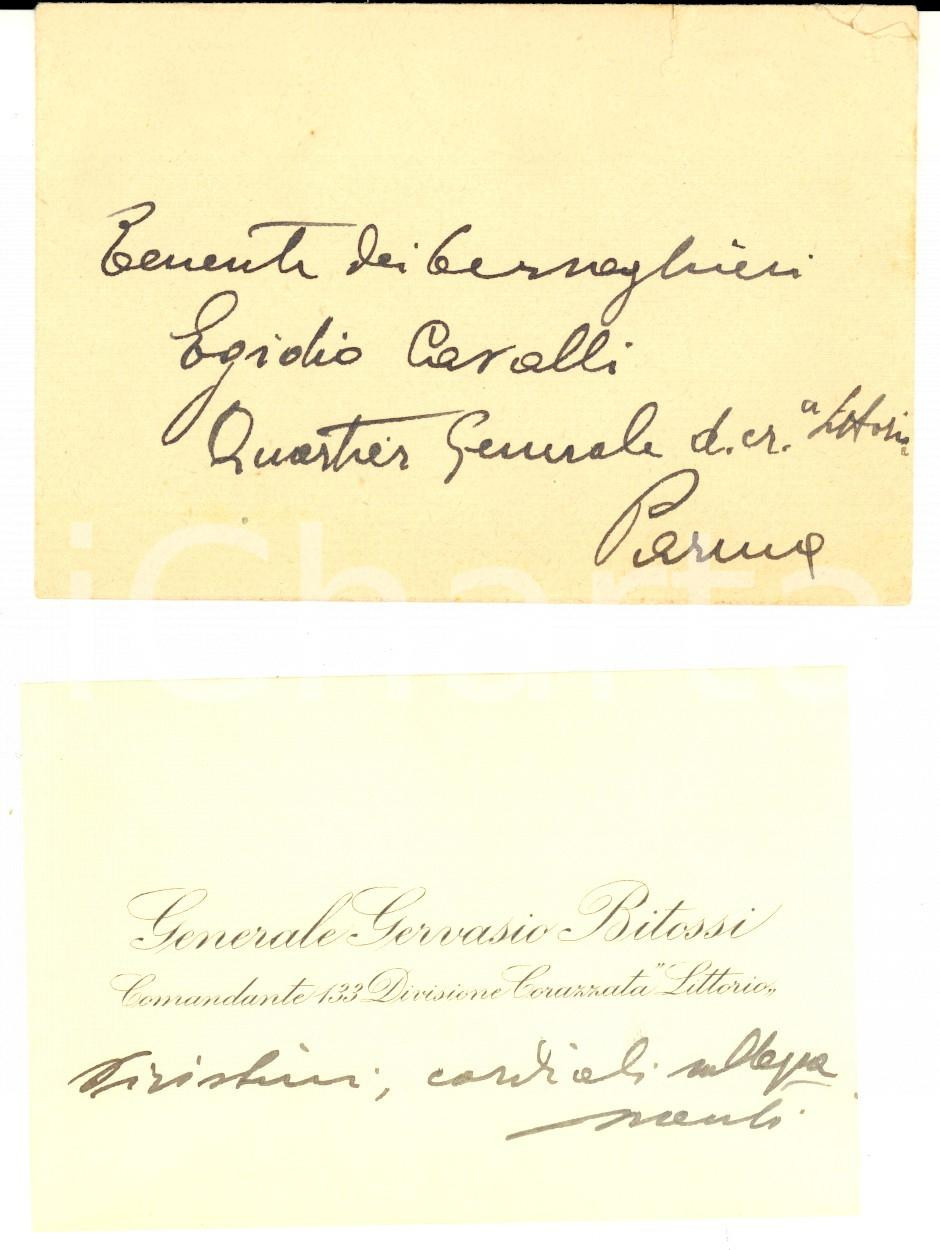 Tenente dei Bersaglieri
Egidio Cavalli
Quartier Generale d. cr. "Littorio"
Parma
iCharta
Generale Gervasio Bitossi
Comandante 133 Divisione Corazzata "Littorio„
vivissimi, cordiali rallegra
menti